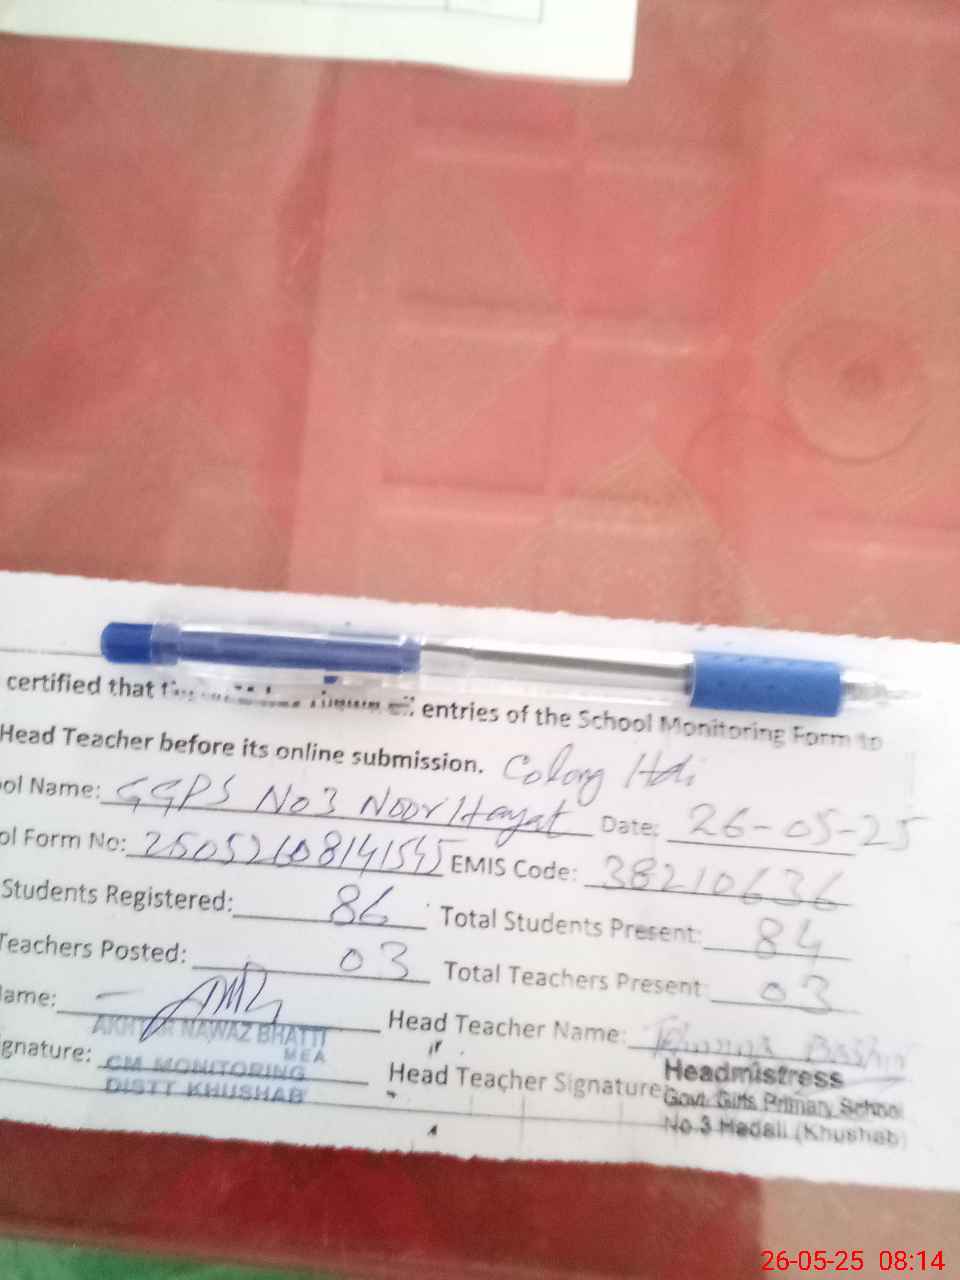 certified that entries of the School Monitoring Form to
Head Teacher before its online submission.
Colony Hdi
ool Name: GGPS No 3 Noor Hayat Date: 26-05-25
ol Form No: 25052608141545 EMIS Code: 38210636
Students Registered: 86 Total Students Present: 84
Teachers Posted: 03 Total Teachers Present: 03
lame: Head Teacher Name: Bashir
AKHTAR NAWAZ BHATTI
MEA
gnature: CM MONITORING Head Teacher Signature
DISTT KHUSHAB
Headmistress
Govt. Girls Primary School
No.3 Hadali (Khushab)
26-05-25 08:14